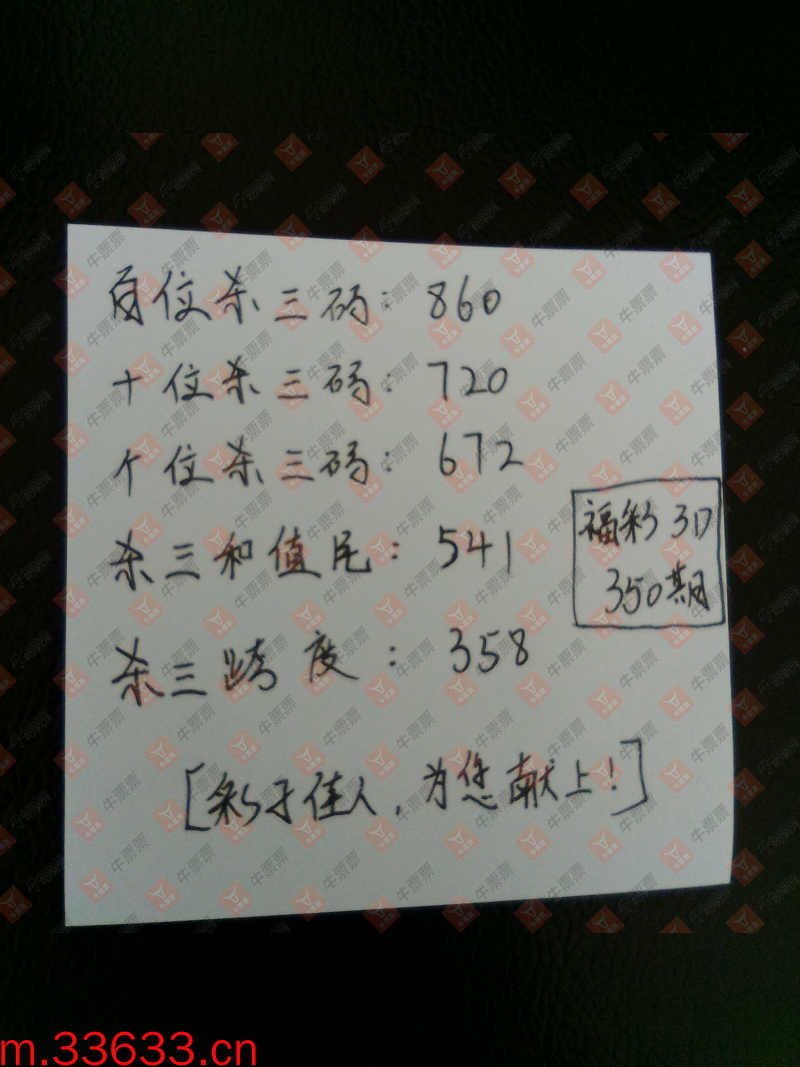 百位杀三码：860
十位杀三码：720
个位杀三码：672
杀三和值尾：541
福彩3D
350期
杀三跨度：358
[彩子佳人，为您献上！]
牛票票
m.33633.cn